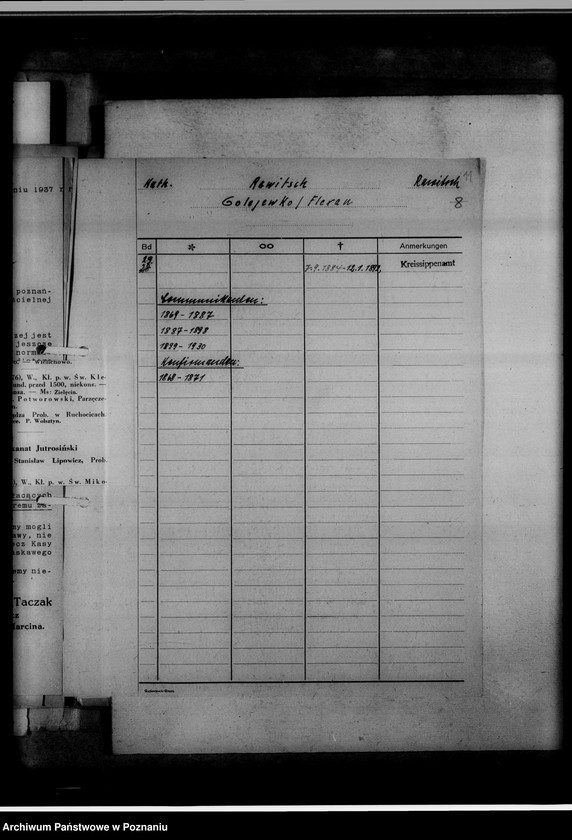 niu 1937 r
poznań-
cielnej
zej jest
jeszcze
W., Kł. p. w. Św. Kle-
and. przed 1500, niekons. —
nsa. — Ms: Zielęcin.
Potworowski, Parzęcze-
ądza Prob. w Ruchocicach.
oz. P. Wolsztyn.
kanat Jutrosiński
Stanisław Lipowicz, Prob.
), W., Kł. p. w. Św. Miko-
ny mogli
awy, nie
oz Kasy
skawego
emy nie-
Taczak
Marcina.
Kath. Rawitsch Rawitsch 11
Golejewko / Fleran 8
Bd * oo † Anmerkungen
7.9.1884-12.1.1892, Kreissippenamt
Kommunikanten:
1869-1887
1887-1898
1899-1930
Konfirmanden:
1868-1871
Archiwum Państwowe w Poznaniu